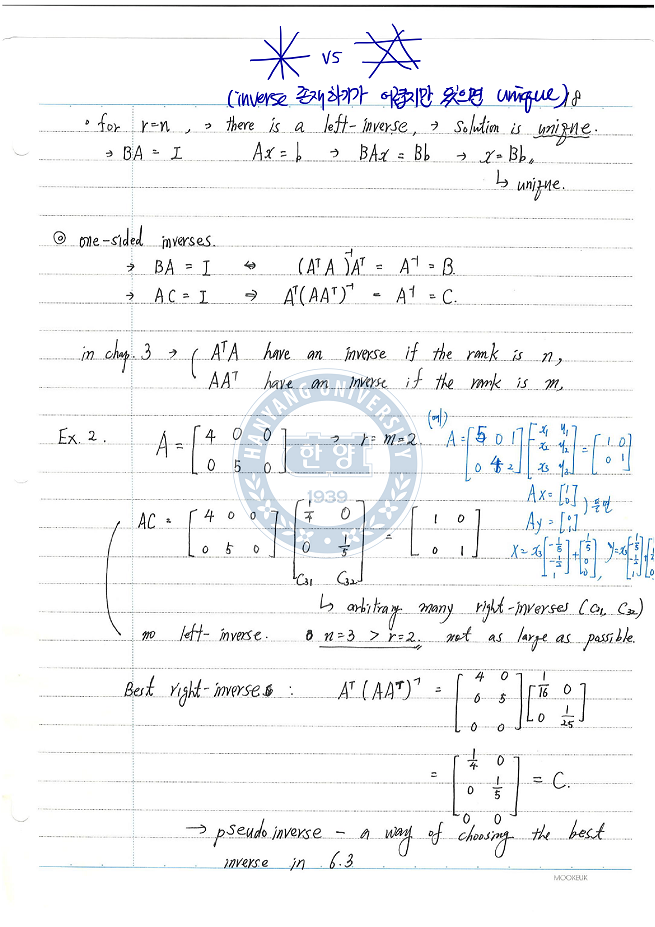 vs
(inverse 존재하기가 어렵지만 있으면 unique) 8
• for r=n, → there is a left-inverse, → solution is unique.
→ BA = I Ax = b → BAx = Bb → x = Bb.
↳ unique.
◎ one-sided inverses.
→ BA = I ⇔ (AᵀA)⁻¹Aᵀ = A⁻¹ = B.
→ AC = I ⇒ Aᵀ(AAᵀ)⁻¹ = A⁻¹ = C.
in chap. 3 → ( AᵀA have an inverse if the rank is n,
AAᵀ have an inverse if the rank is m,
HANYANG UNIVERSITY
한양
1939
Ex. 2. A = [4 0 0
0 5 0] → r=m=2.
(예) A = [5 0 1
0 4 2] [x₁ y₁
x₂ y₂
x₃ y₃] = [1 0
0 1]
Ax = [1
0]
Ay = [0
1]
x = x₃[-1/5
-1/2
1] + [1/5
0
0],
AC = [4 0 0
0 5 0] [1/4 0
0 1/5
C₃₁ C₃₂] = [1 0
0 1]
↳ arbitrary many right-inverses (C₃₁, C₃₂)
no left-inverse. n=3 > r=2. not as large as possible.
Best right-inverse : Aᵀ(AAᵀ)⁻¹ = [4 0
0 5
0 0] [1/16 0
0 1/25]
= [1/4 0
0 1/5
0 0] = C.
→ pseudoinverse – a way of choosing the best
inverse in 6.3
MOOKEUK